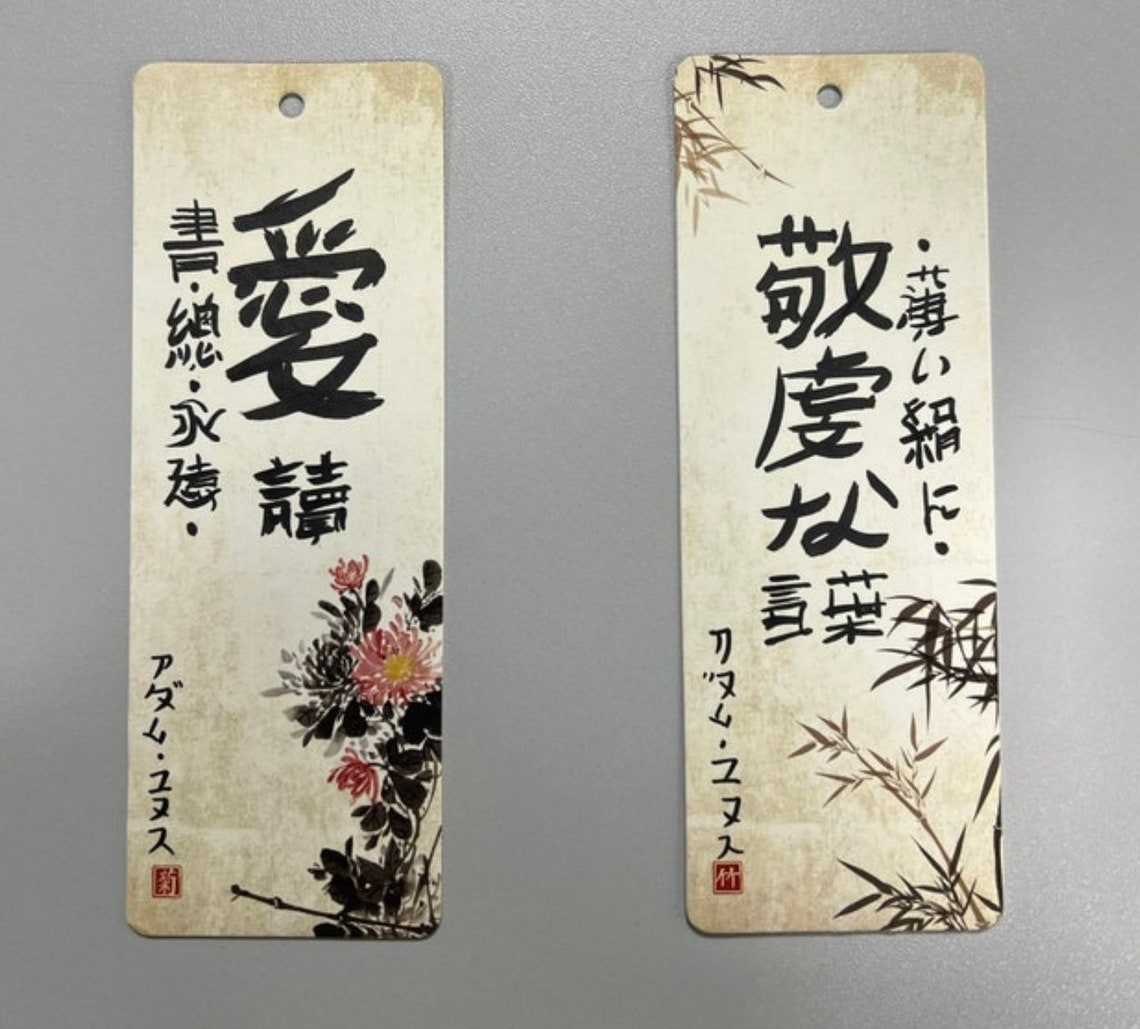 愛
讀
書・總・永遠・
アダム・ユヌス
菊
・薄い絹に・
敬虔な
言葉
アダム・ユヌス
竹